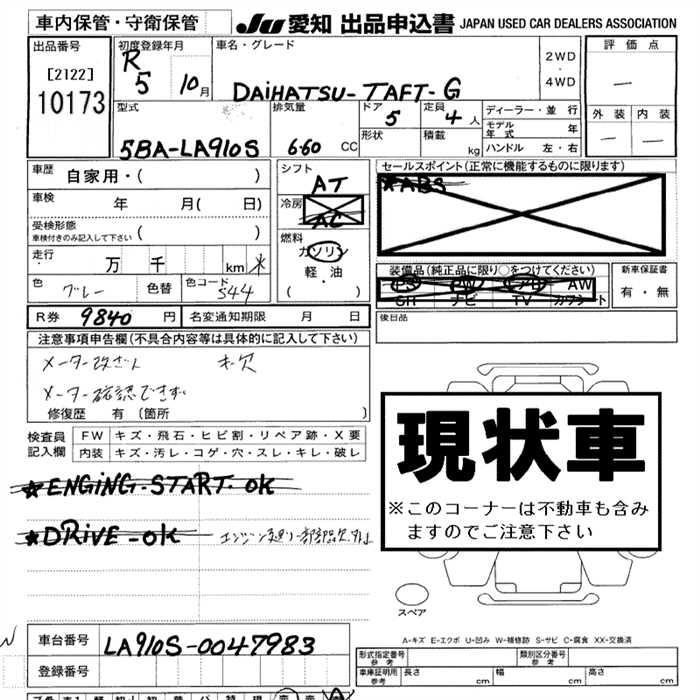 車内保管・守衛保管
JU 愛知 出品申込書 JAPAN USED CAR DEALERS ASSOCIATION
出品番号
[2122]
10173
初度登録年月
R
5 10月
車名・グレード
DAIHATSU-TAFT-G
2WD
・
4WD
評価点
—
型式
5BA-LA910S
排気量
6.60 CC
ドア
5
定員
4 人
形状
積載
kg
ディーラー・並行
モデル年式 年
ハンドル 左・右
外装 内装
— —
車歴 自家用・( )
車検 年 月( 日)
受検形態
車検付きのみ記入して下さい ( )
走行 万 千 km
色 グレー 色替 色コード 544
シフト
AT
冷房
AC
燃料
ガソリン
軽・油
( ・ )
セールスポイント(正常に機能するものに限ります)
★ABS
装備品(純正品に限り○をつけてください)
PS PW エアB AW
GH ナビ TV カワシート
新車保証書
有・無
後日品
R券 9840 円 名変通知期限 月 日
注意事項申告欄(不具合内容等は具体的に記入して下さい)
メーター改ざん キー欠
メーター確認できず
修復歴 有(箇所 )
検査員記入欄
FW キズ・飛石・ヒビ割・リペア跡・X要
内装 キズ・汚レ・コゲ・穴・スレ・キレ・破レ
★ENGING-START-OK
★DRIVE-OK エンジン廻り一部部品欠、外し
現状車
※このコーナーは不動車も含み
ますのでご注意下さい
スペア
A-キズ E-エクボ U-凹み W-補修跡 S-サビ C-腐食 XX-交換済
車台番号 LA910S-0047983
登録番号
形式指定番号
参考
類別区分番号
参考
車庫証明用
参考
長さ cm 幅 cm 高さ cm